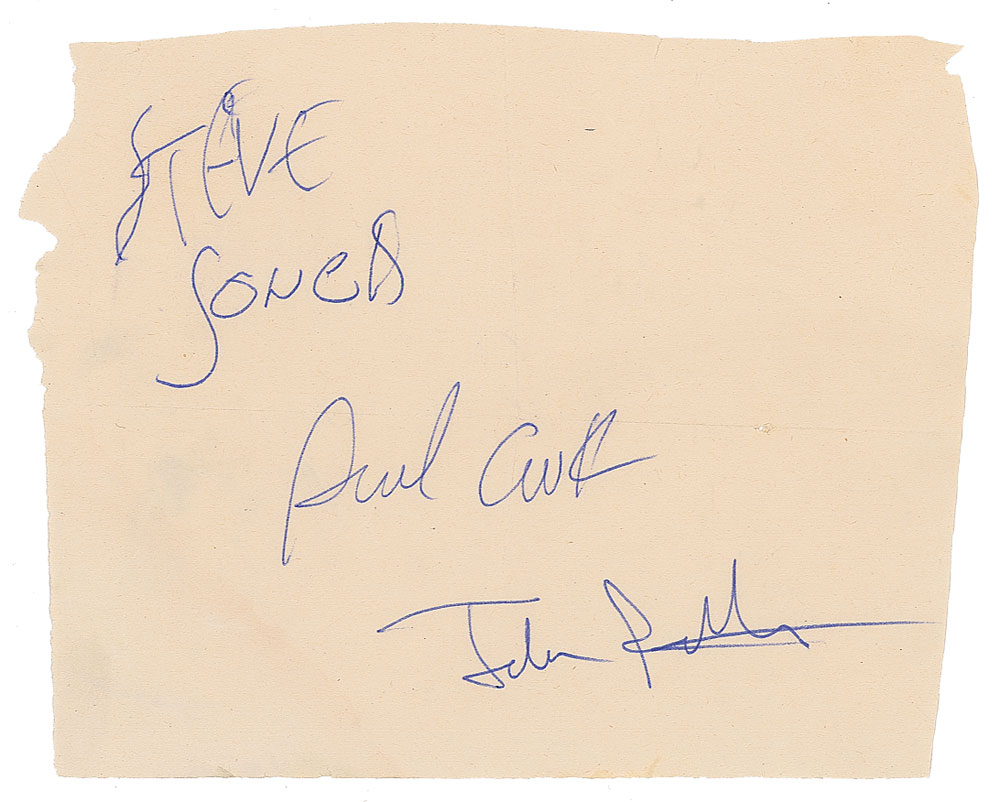 STEVE
JONES
Paul Cook
John Rotten